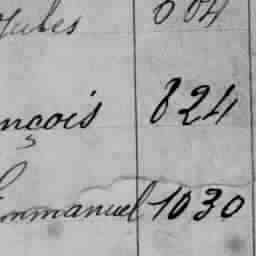 Jules 604
nçois 824
Emmanuel 1030